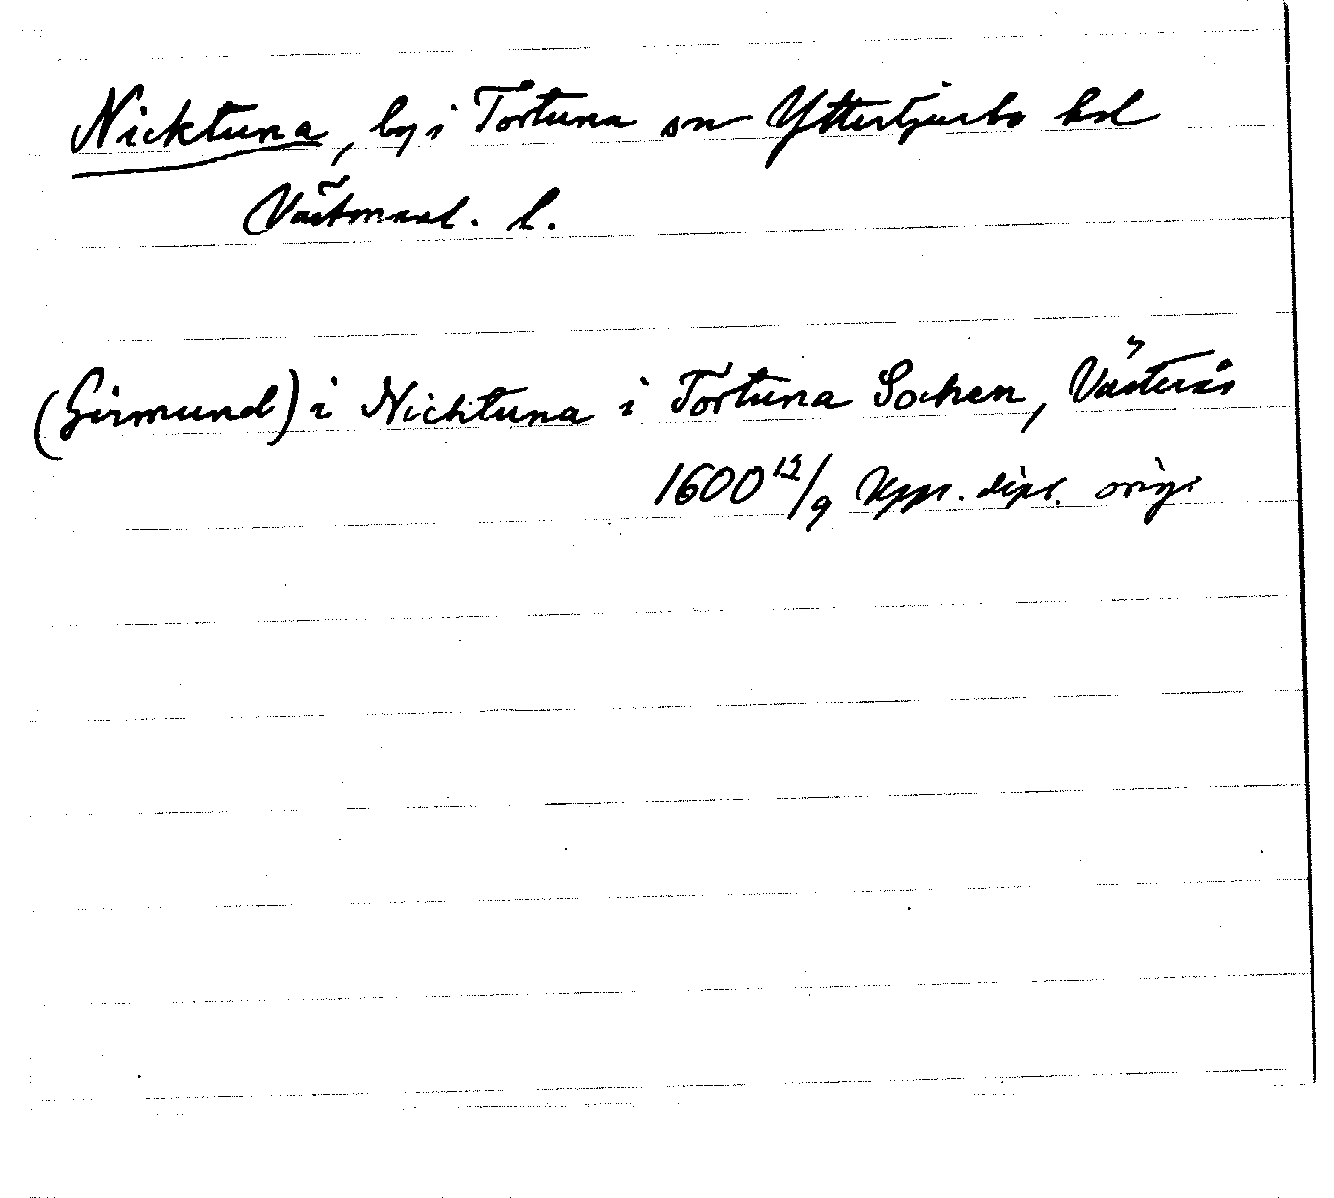 Nicktuna, by i Tortuna sn Yttertjurbo hd
Västmanl. l.
(Girmund) i Nichtuna i Tortuna Sochen, Västerås
1600 12/9 Upps. dipl. orig.